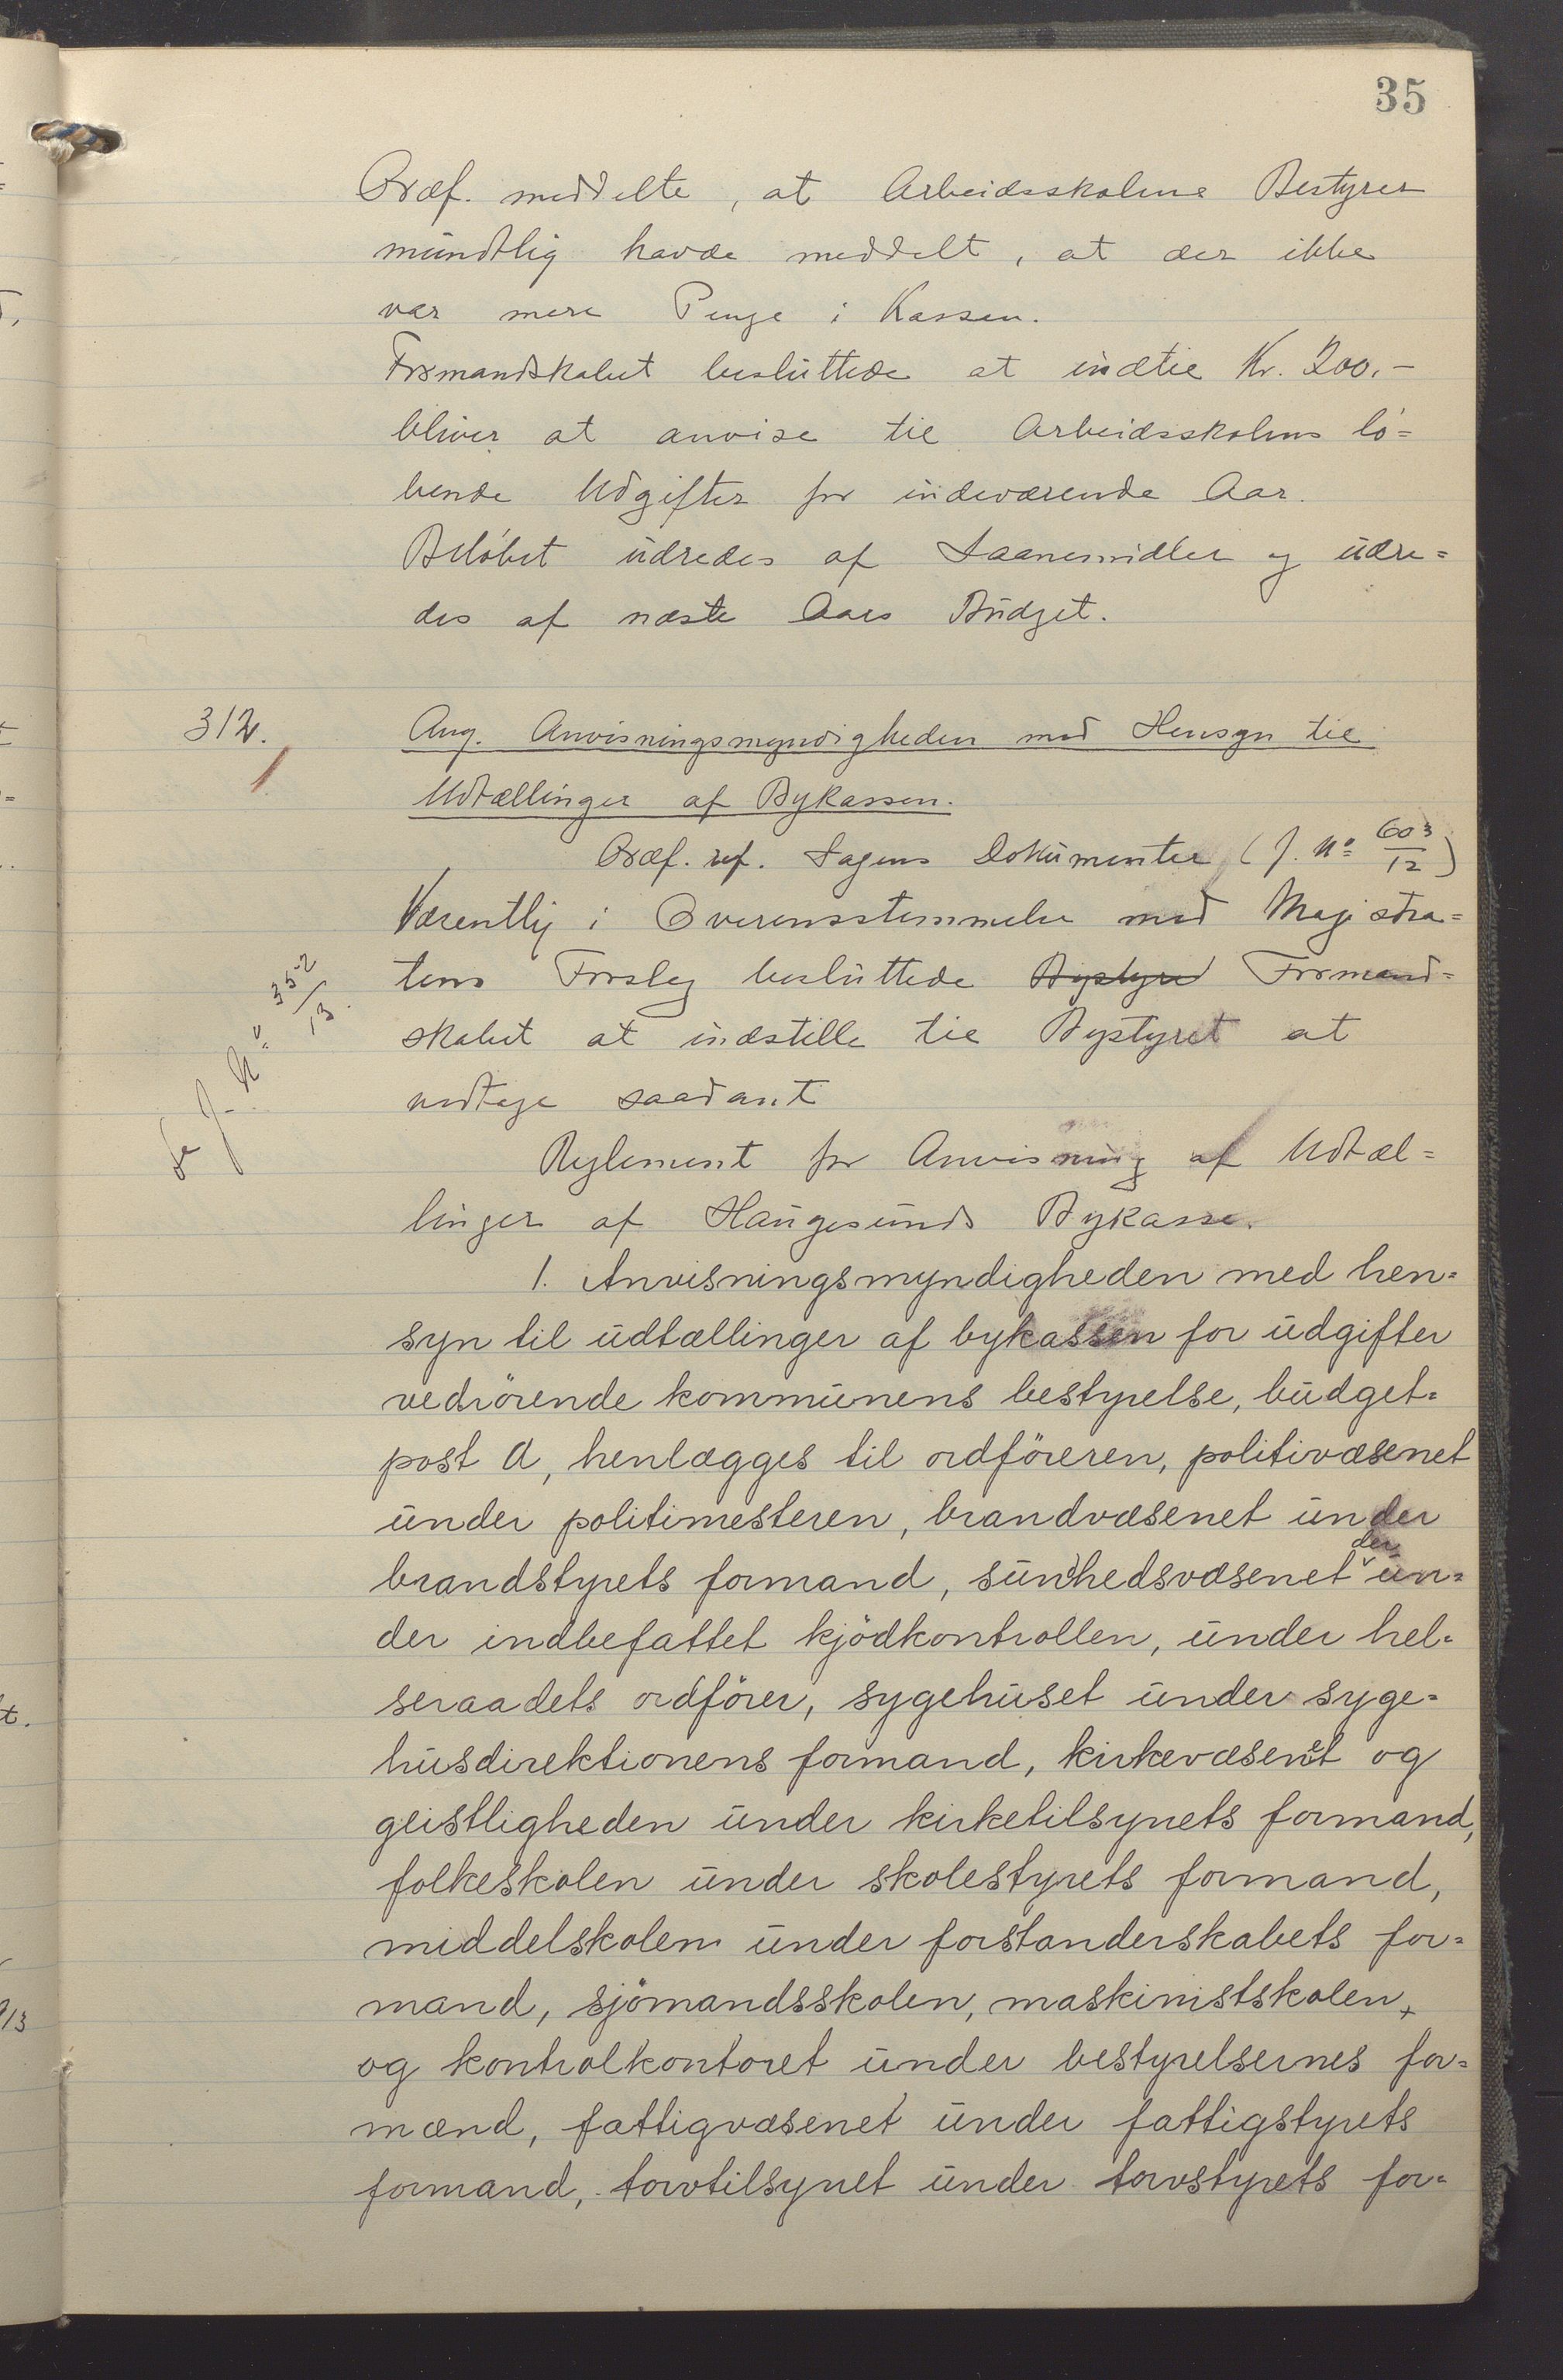 35
Ordf. meddelte, at Arbeidsskolens Bestyrer
mundtlig havde meddelt, at der ikke
var mere Penge i Kassen.
Formandskabet besluttede at indtil Kr. 200.-
bliver at anvise til Arbeidsskolens lö=
bende Udgifter for indeværende Aar.
Belöbet udredes af Laanemidler og udre=
des af næste Aars Budget.
312.
Ang. Anvisningsmyndigheden med Hensyn til
Udtællinger af Bykassen.
Ordf. ref. Sagens Dokumenter (J. No 603/12)
Væsentlig i Overensstemmelse med Magistra=
tens Forslag besluttede Bystyre Formand=
skabet at indstille til Bystyret at
vedtage saadant
Se J. No 352/13.
Reglement for Anvisning af Udtæl=
linger af Haugesunds Bykasse.
1. Anvisningsmyndigheden med hen=
syn til udtællinger af bykassen for udgifter
vedrörende kommunens bestyrelse, budget=
post A, henlægges til ordföreren, politivæsenet
under politimesteren, brandvæsenet under
brandstyrets formand, sundhedsvæsenet der un=
der indbefattet kjödkontrollen, under hel=
seraadets ordförer, sygehuset under syge=
husdirektionens formand, kirkevæsenet og
geistligheden under kirketilsynets formand,
folkeskolen under skolestyrets formand,
middelskolen under forstanderskabets for=
mand, sjömandsskolen, maskinistskolen,
og kontrolkontoret under bestyrelsernes for=
mænd, fattigvæsenet under fattigstyrets
formand, torvtilsynet under torvstyrets for=